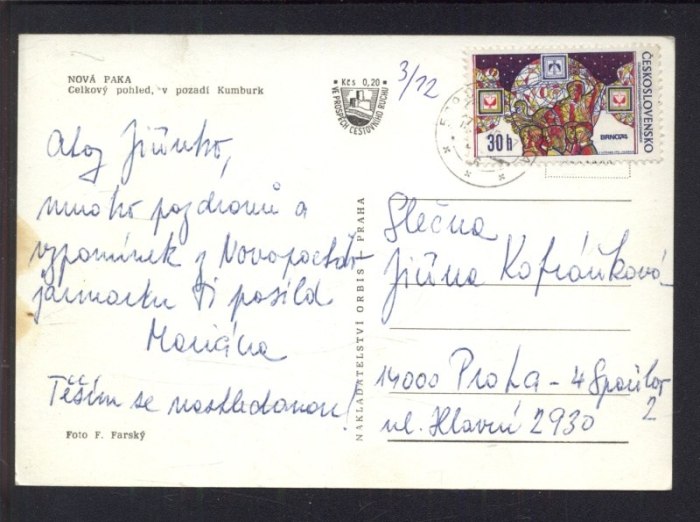 NOVÁ PAKA
Celkový pohled, v pozadí Kumburk
Kčs 0,20
VE PROSPĚCH CESTOVNÍHO RUCHU
3/12
ČESKOSLOVENSKO
30h
BRNO74
Ahoj Jiřinko,
mnoho pozdravů a
vzpomínek z Novopack
jarmarku Ti posílá
Mariána
Těším se naskledanou!
Foto F. Farský
NAKLADATELSTVÍ ORBIS PRAHA
Slečna
Jiřina Kofránková
14000 Praha - 4 Spořilov
2
ul. Hlavní 2930